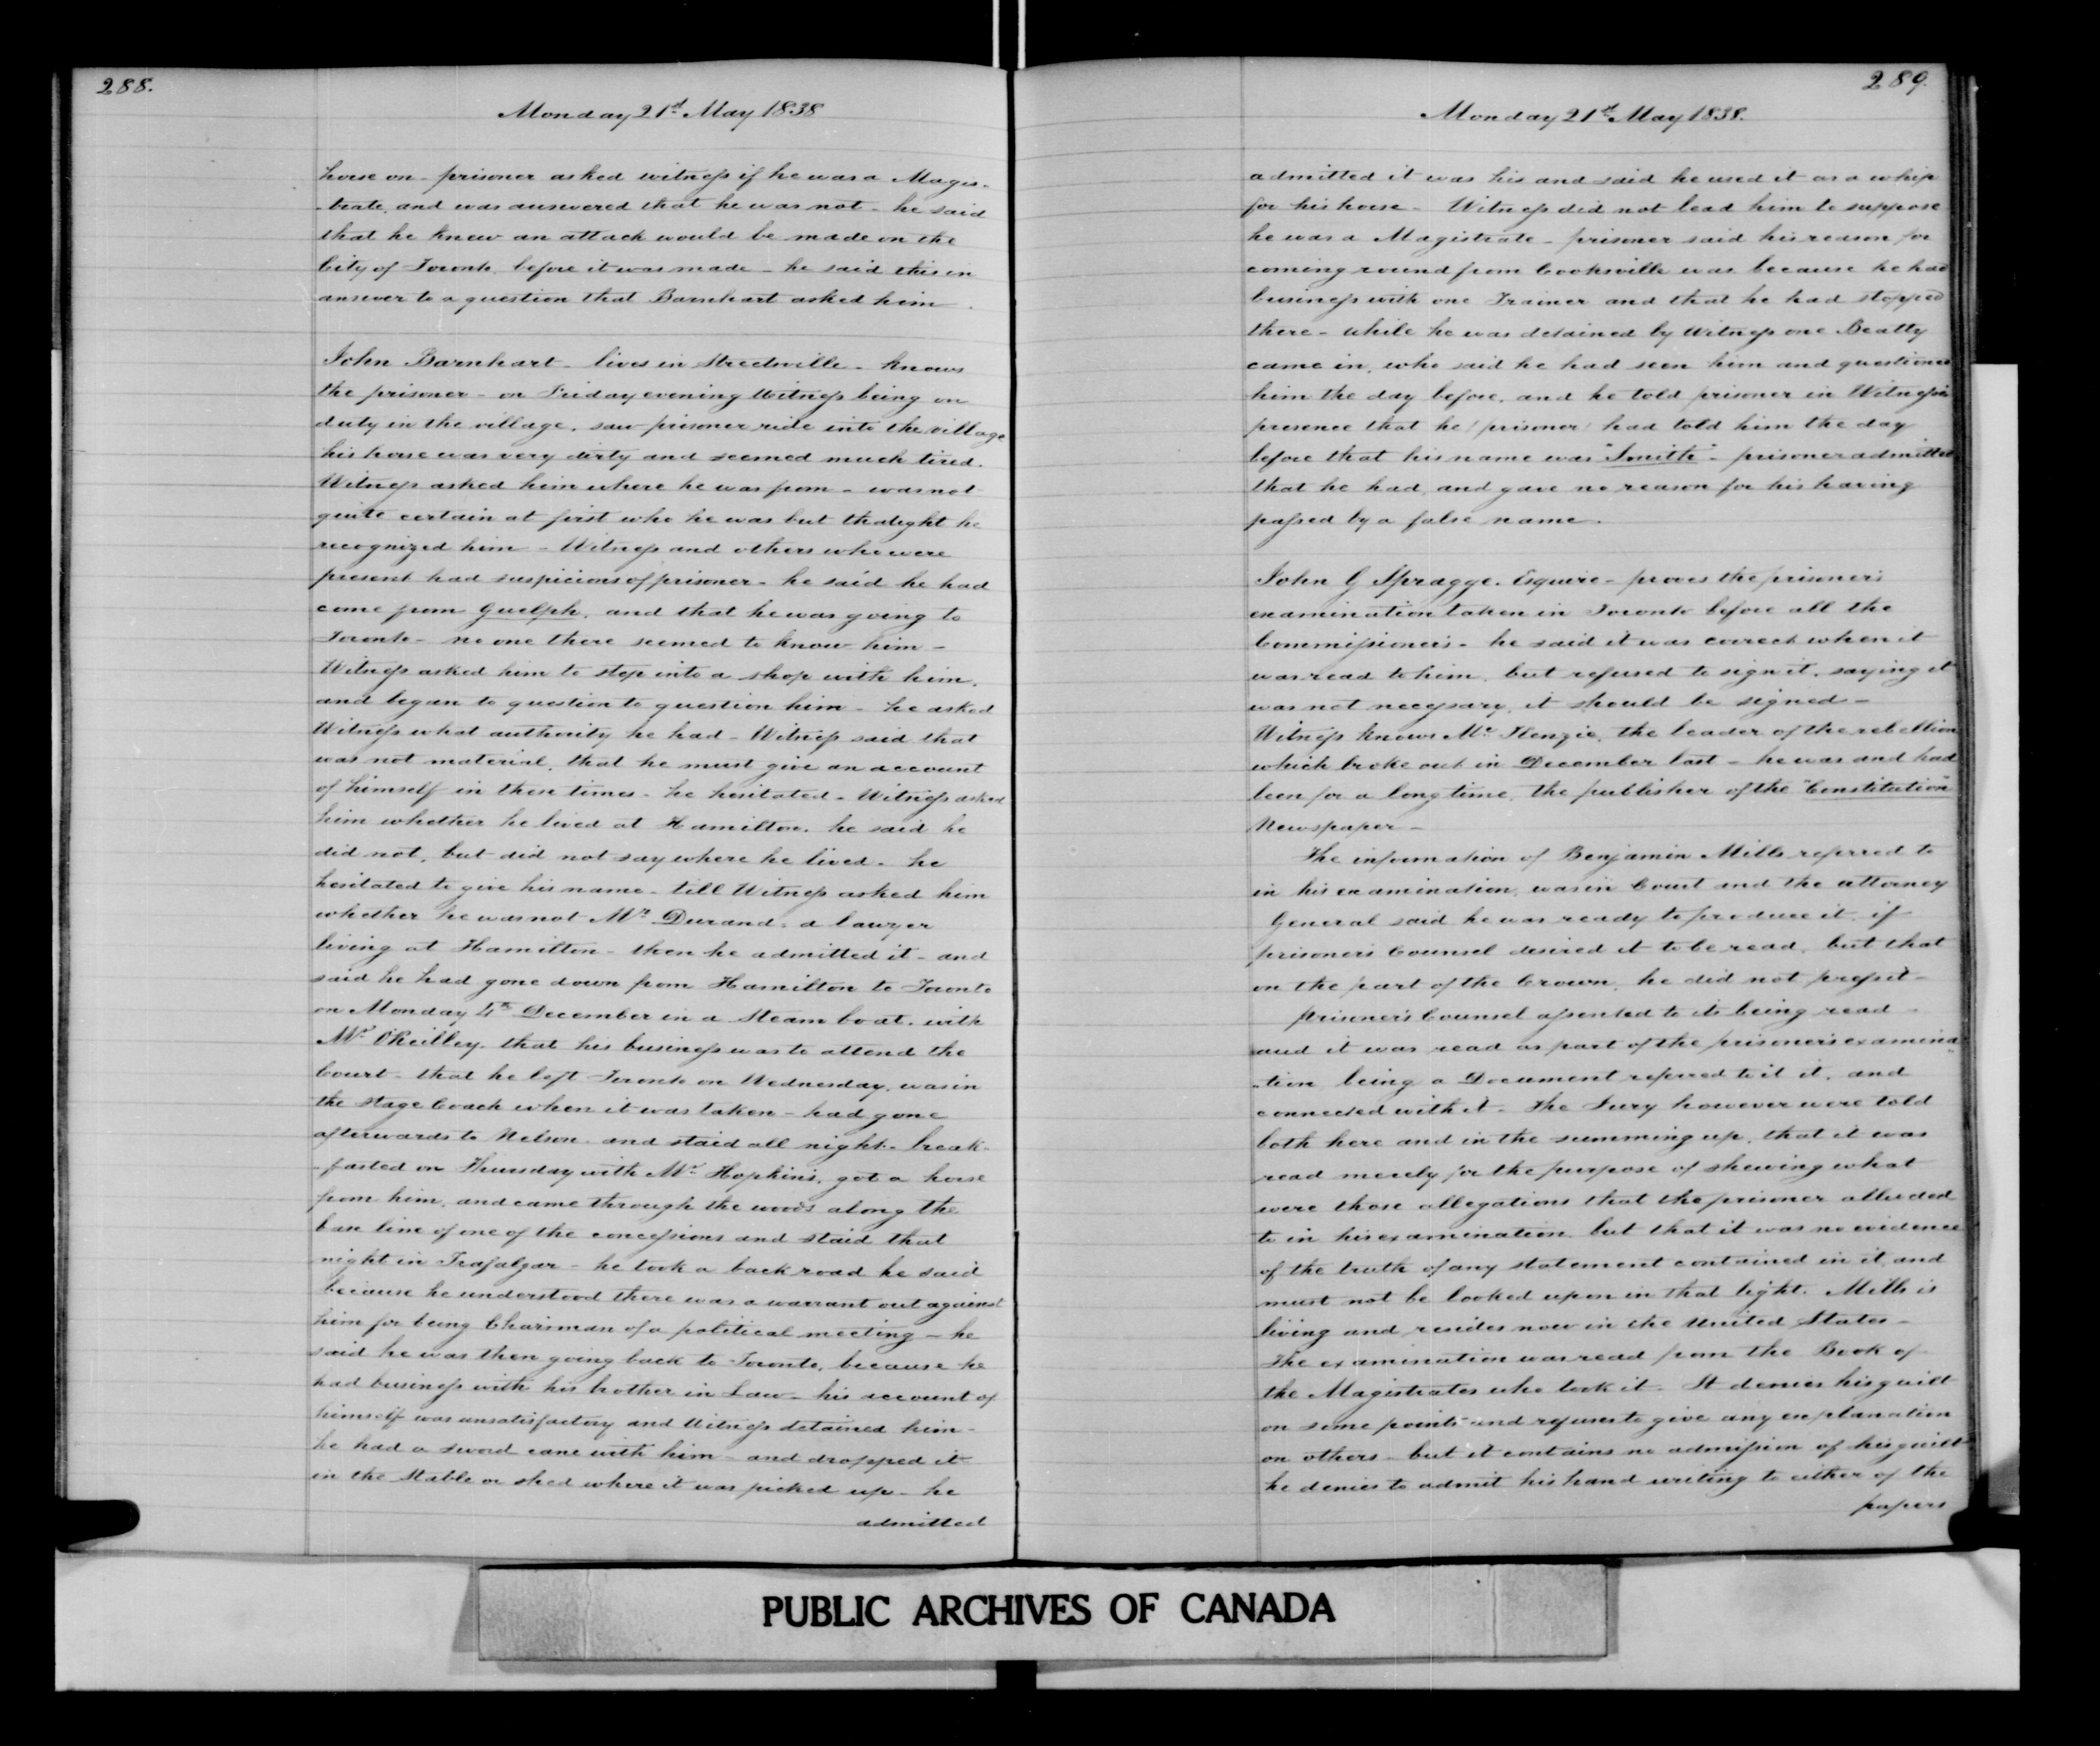 288.
Monday 21st May 1838
horse on - prisoner asked witness if he was a Magis-
-trate, and was answered that he was not - he said
that he knew an attack would be made on the
City of Toronto, before it was made - he said this in
answer to a question that Barnhart asked him.
John Barnhart - lives in Streetsville - knows
the prisoner - on Friday evening Witness being on
duty in the village, saw prisoner ride into the village
his horse was very dirty and seemed much tired.
Witness asked him where he was from - was not
quite certain at first who he was but thought he
recognized him - Witness and others who were
present had suspicions of prisoner - he said he had
come from Guelph, and that he was going to
Toronto - no one there seemed to know him -
Witness asked him to step into a shop with him,
and began to question to question him - he asked
Witness what authority he had - Witness said that
was not material, that he must give an account
of himself in these times - he hesitated - Witness asked
him whether he lived at Hamilton, he said he
did not, but did not say where he lived - he
hesitated to give his name - till Witness asked him
whether he was not Mr. Durand, a lawyer
living at Hamilton - then he admitted it - and
said he had gone down from Hamilton to Toronto
on Monday 4th December in a Steam boat, with
Mr. O'Reilley, that his business was to attend the
Court - that he left Toronto on Wednesday, was in
the Stage Coach when it was taken - had gone
afterwards to Nelson and staid all night - break-
-fasted on Thursday with Mr. Hopkins, got a horse
from him, and came through the woods along the
base line of one of the concessions and staid that
night in Trafalgar - he took a back road he said
because he understood there was a warrant out against
him for being Chairman of a political meeting - he
said he was then going back to Toronto, because he
had business with his brother in Law - his account of
himself was unsatisfactory and Witness detained him -
he had a sword cane with him - and dropped it
in the Stable or shed where it was picked up - he
admitted
289.
Monday 21st May 1838.
admitted it was his and said he used it as a whip
for his horse - Witness did not lead him to suppose
he was a Magistrate - prisoner said his reason for
coming round from Cooksville was because he had
business with one Trainer and that he had stopped
there - while he was detained by Witness one Beatty
came in, who said he had seen him and questioned
him the day before, and he told prisoner in Witness's
presence that he (prisoner) had told him the day
before that his name was "Smith" - prisoner admitted
that he had, and gave no reason for his having
passed by a false name.
John G Spragge. Esquire - proves the prisoner's
examination taken in Toronto before all the
Commissioners - he said it was correct when it
was read to him, but refused to sign it, saying it
was not necessary, it should be signed -
Witness knows Mc. Kenzie, the leader of the rebellion
which broke out in December last - he was and had
been for a long time, the publisher of the "Constitution"
Newspaper -
The information of Benjamin Mills referred to
in his examination, was in Court and the attorney
General said he was ready to produce it, if
prisoner's Counsel desired it to be read, but that
on the part of the Crown, he did not press it -
Prisoner's Counsel assented to its being read -
and it was read as part of the prisoner's examina-
-tion being a Document referred to it it, and
connected with it - The Jury however were told
both here and in the summing up, that it was
read merely for the purpose of shewing what
were those allegations that the prisoner alluded
to in his examination, but that it was no evidence
of the truth of any statement contained in it, and
must not be looked upon in that light. Mills is
living and resides now in the United States -
The examination was read from the Book of
the Magistrates who took it. It denies his guilt
on some points and refuses to give any explanation
on others - but it contains no admission of his guilt
he denies to admit his hand writing to either of the
papers
PUBLIC ARCHIVES OF CANADA